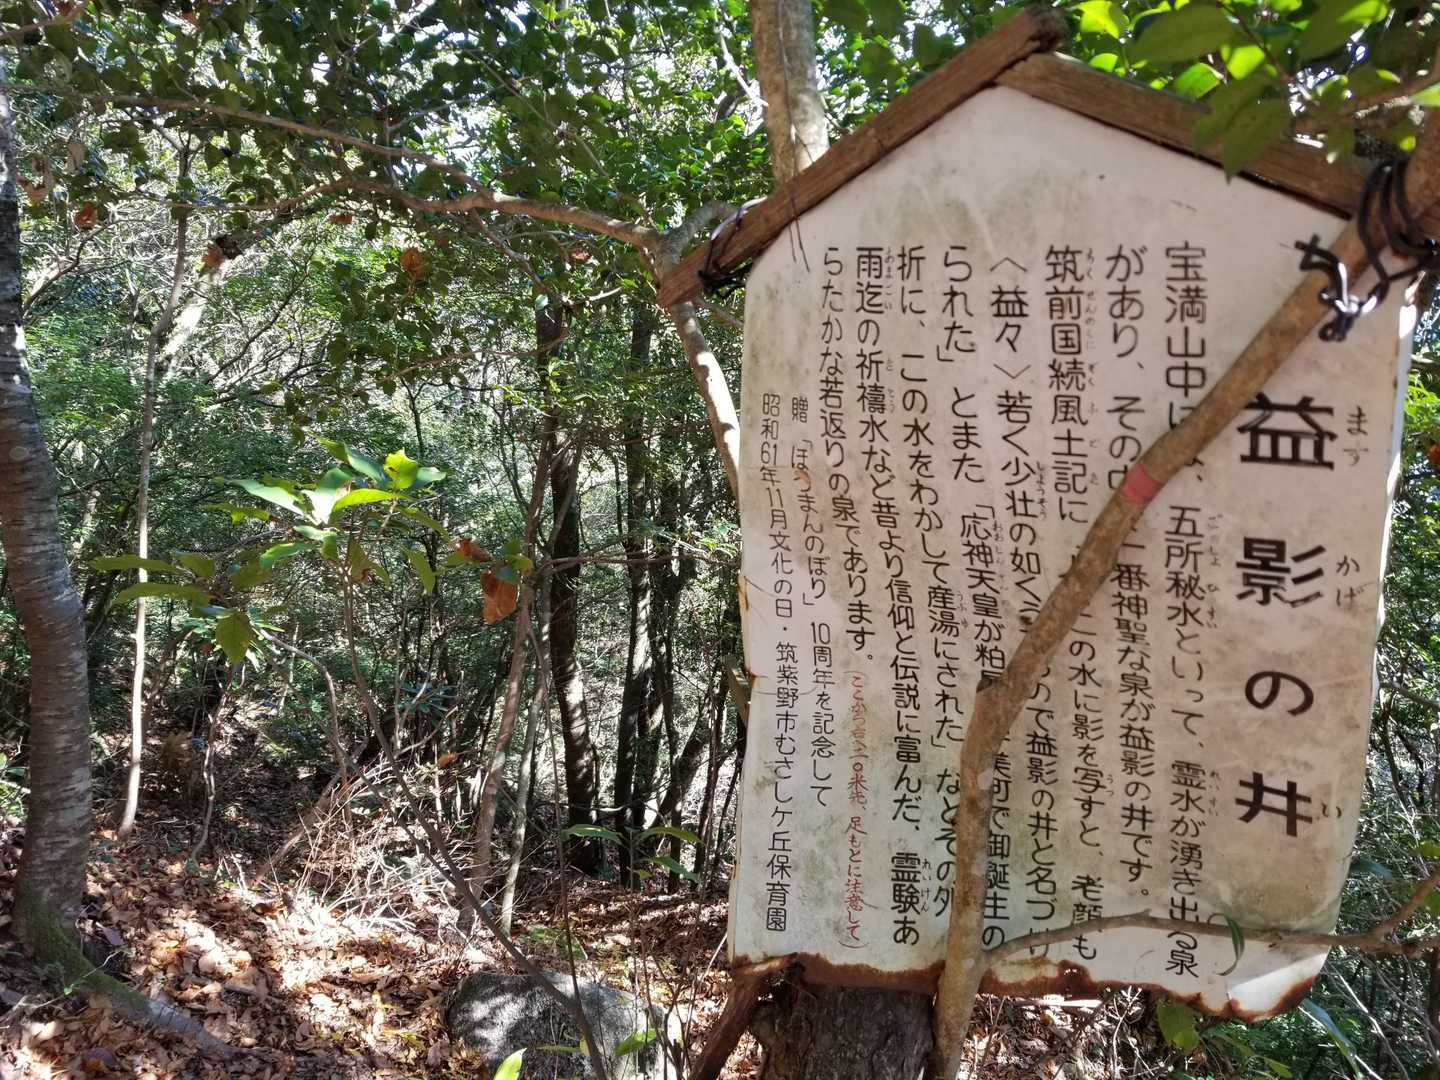 益影の井
ます かげ い
宝満山中に、五所秘水といって、霊水が湧き出る泉
があり、その中一番神聖な泉が益影の井です。
筑前国続風土記に この水に影を写すと、老顔も
〈益々〉若く少壮の如くので益影の井と名づけ
られた」とまた「応神天皇が粕美町で御誕生の
折に、この水をわかして産湯にされた」などその外
雨迄の祈禱水など昔より信仰と伝説に富んだ、霊験あ
らたかな若返りの泉であります。
足もとに注意して)
贈「ほうまんのぼり」10周年を記念して
昭和61年11月文化の日・筑紫野市むさしケ丘保育園